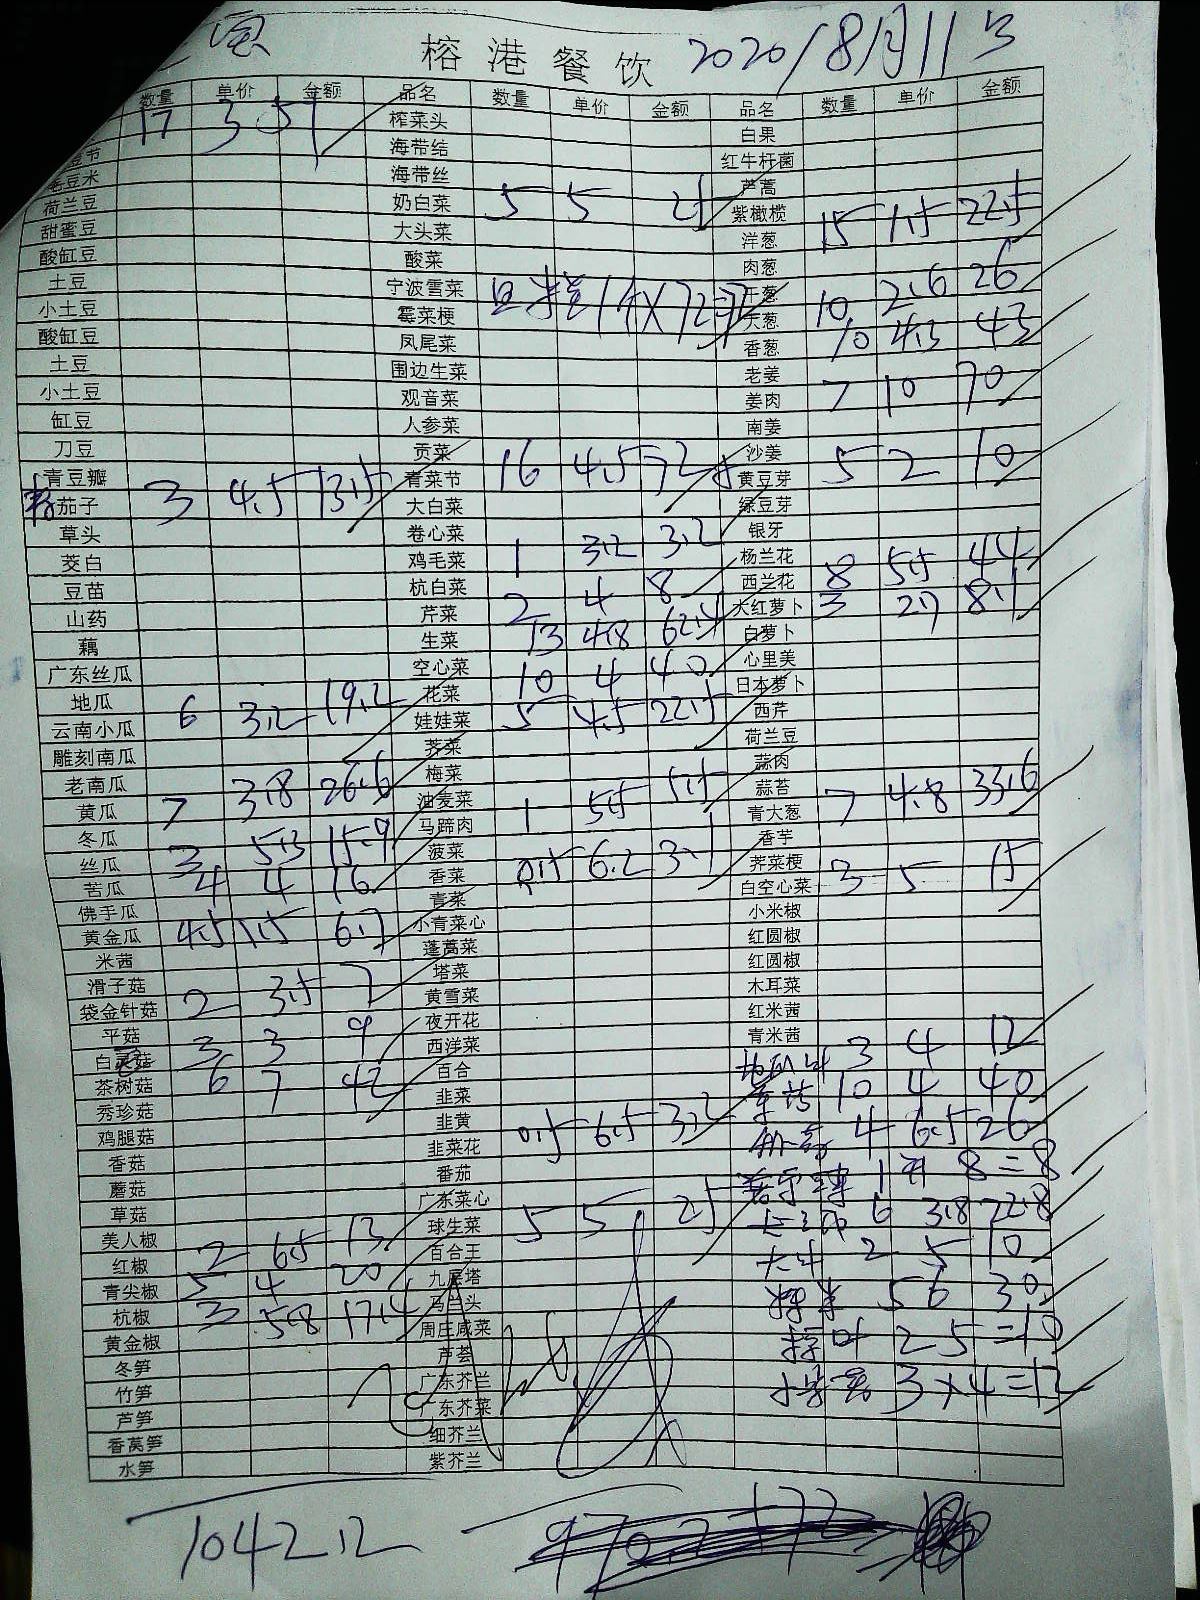 榕港餐饮 2020/8月11号
数量 单价 金额 品名 数量 单价 金额 品名 数量 单价 金额
17 3 51 榨菜头 白果
海带结 红牛杆菌
毛豆米 海带丝 芦蒿
荷兰豆 奶白菜 5 5 25 紫橄榄
甜蜜豆 大头菜 洋葱 15 1.5 22.5
酸缸豆 酸菜 肉葱
土豆 宁波雪菜 干葱 10 2.6 26
小土豆 霉菜梗 大葱 10 4.3 43
酸缸豆 凤尾菜 香葱
土豆 围边生菜 老姜 7 10 70
小土豆 观音菜 姜肉
缸豆 人参菜 南姜
刀豆 贡菜 16 4.5 72 沙姜 5 2 10
青豆瓣 青菜节 黄豆芽
茄子 3 4.5 13.5 大白菜 绿豆芽
草头 卷心菜 1 3.2 3.2 银牙
茭白 鸡毛菜 杨兰花 8 5.5 44
豆苗 杭白菜 2 4 8 西兰花
山药 芹菜 13 4.8 62.4 大红萝卜 3 2.7 8.1
藕 生菜 白萝卜
广东丝瓜 空心菜 10 4 40 心里美
地瓜 6 3.2 19.2 花菜 5 4.5 22.5 日本萝卜
云南小瓜 娃娃菜 西芹
雕刻南瓜 荠菜 荷兰豆
老南瓜 7 3.8 26.6 梅菜 蒜肉
黄瓜 油麦菜 1 5.5 5.5 蒜苔 7 4.8 33.6
冬瓜 3 5.3 15.9 马蹄肉 青大葱
丝瓜 4 4 16 菠菜 0.5 6.2 3.1 香芋
苦瓜 香菜 荠菜梗 3 5 15
佛手瓜 青菜 白空心菜
黄金瓜 4.5 1.5 6.7 小青菜心 小米椒
米茜 蓬蒿菜 红圆椒
滑子菇 塔菜 红圆椒
袋金针菇 2 3.5 7 黄雪菜 木耳菜
平菇 夜开花 红米茜
白灵菇 3 3 9 西洋菜 青米茜
茶树菇 6 7 42 百合 3 4 12
秀珍菇 韭菜 10 4 40
鸡腿菇 韭黄 0.5 6.5 3.2 4 6.5 26
香菇 韭菜花 8=8
蘑菇 番茄 6 3.8 22.8
草菇 广东菜心 5 5 25
美人椒 球生菜 2 5 10
红椒 2 6.5 13 百合王
青尖椒 5 4 20 九层塔 5 6 30
杭椒 3 5.8 17.4 马兰头
黄金椒 周庄咸菜 2 5=10
冬笋 芦荟
竹笋 广东芥兰 3×4=12
芦笋 广东芥菜
香莴笋 细芥兰
水笋 紫芥兰
1042.12